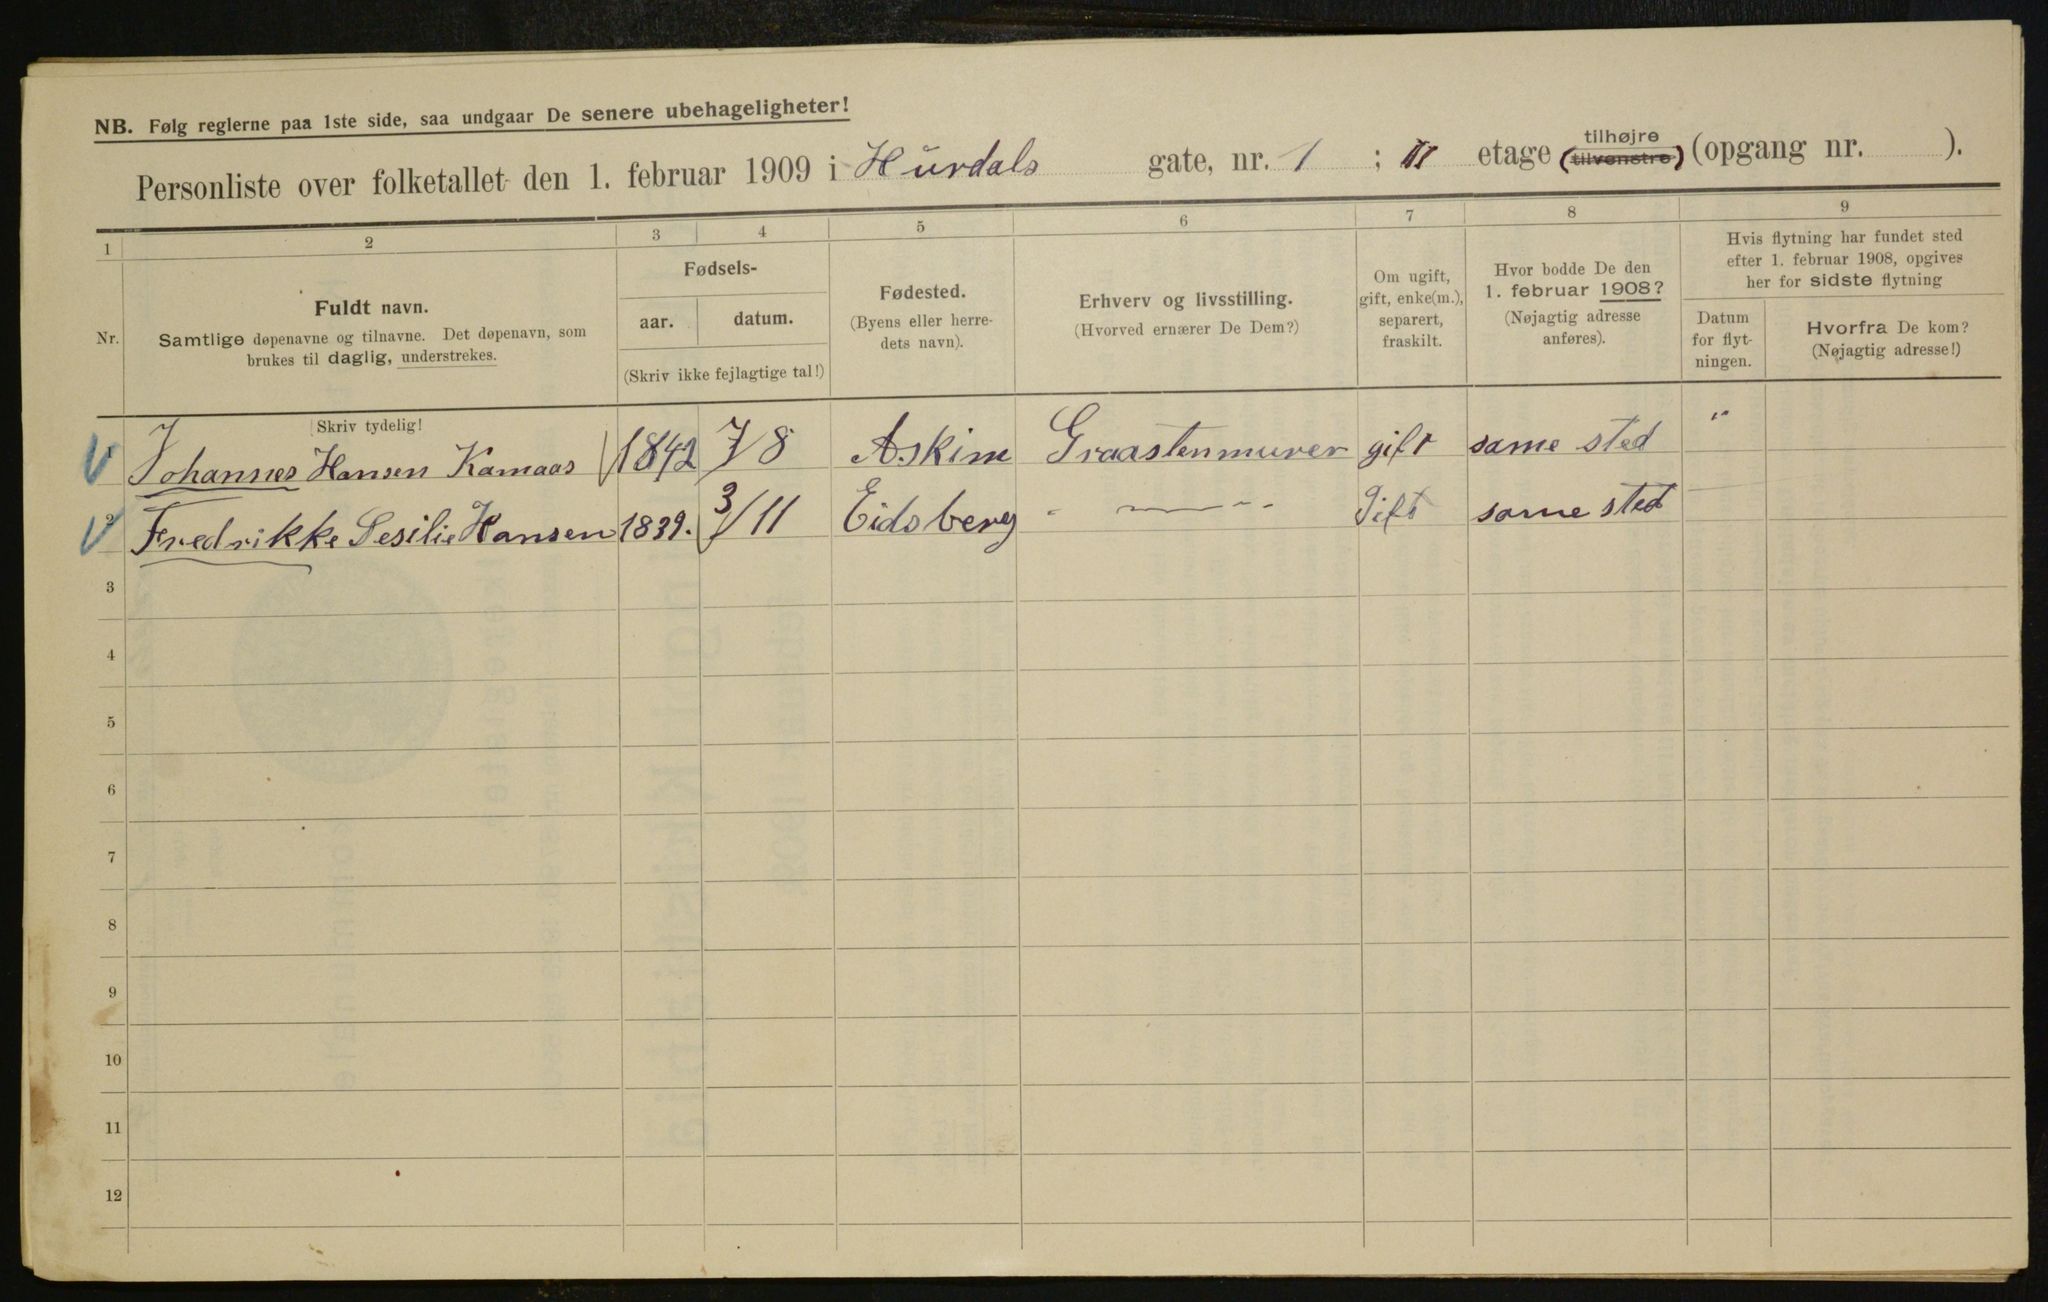 NB. Følg reglerne paa 1ste side, saa undgaar De senere ubehageligheter!
Personliste over folketallet den 1. februar 1909 i Hurdals gate, nr. 1 ; II etage (tilhøjre tilvenstre) (opgang nr. ).
1 2 3 4 5 6 7 8 9
Nr.
Fuldt navn.
Samtlige døpenavne og tilnavne. Det døpenavn, som
brukes til daglig, understrekes.
Fødsels-
aar. datum.
(Skriv ikke fejlagtige tal!)
Fødested.
(Byens eller herre-
dets navn).
Erhverv og livsstilling.
(Hvorved ernærer De Dem?)
Om ugift,
gift, enke(m.),
separert,
fraskilt.
Hvor bodde De den
1. februar 1908?
(Nøjagtig adresse
anføres).
Hvis flytning har fundet sted
efter 1. februar 1908, opgives
her for sidste flytning
Datum
for flyt-
ningen.
Hvorfra De kom?
(Nøjagtig adresse!)
Skriv tydelig!
1 Johannes Hansen Kamaas 1842 7/8 Askim Graastenmurer gift same sted "
2 Fredrikke Sesilie Hansen 1839. 3/11 Eidsberg Gift same sted
3
4
5
6
7
8
9
10
11
12